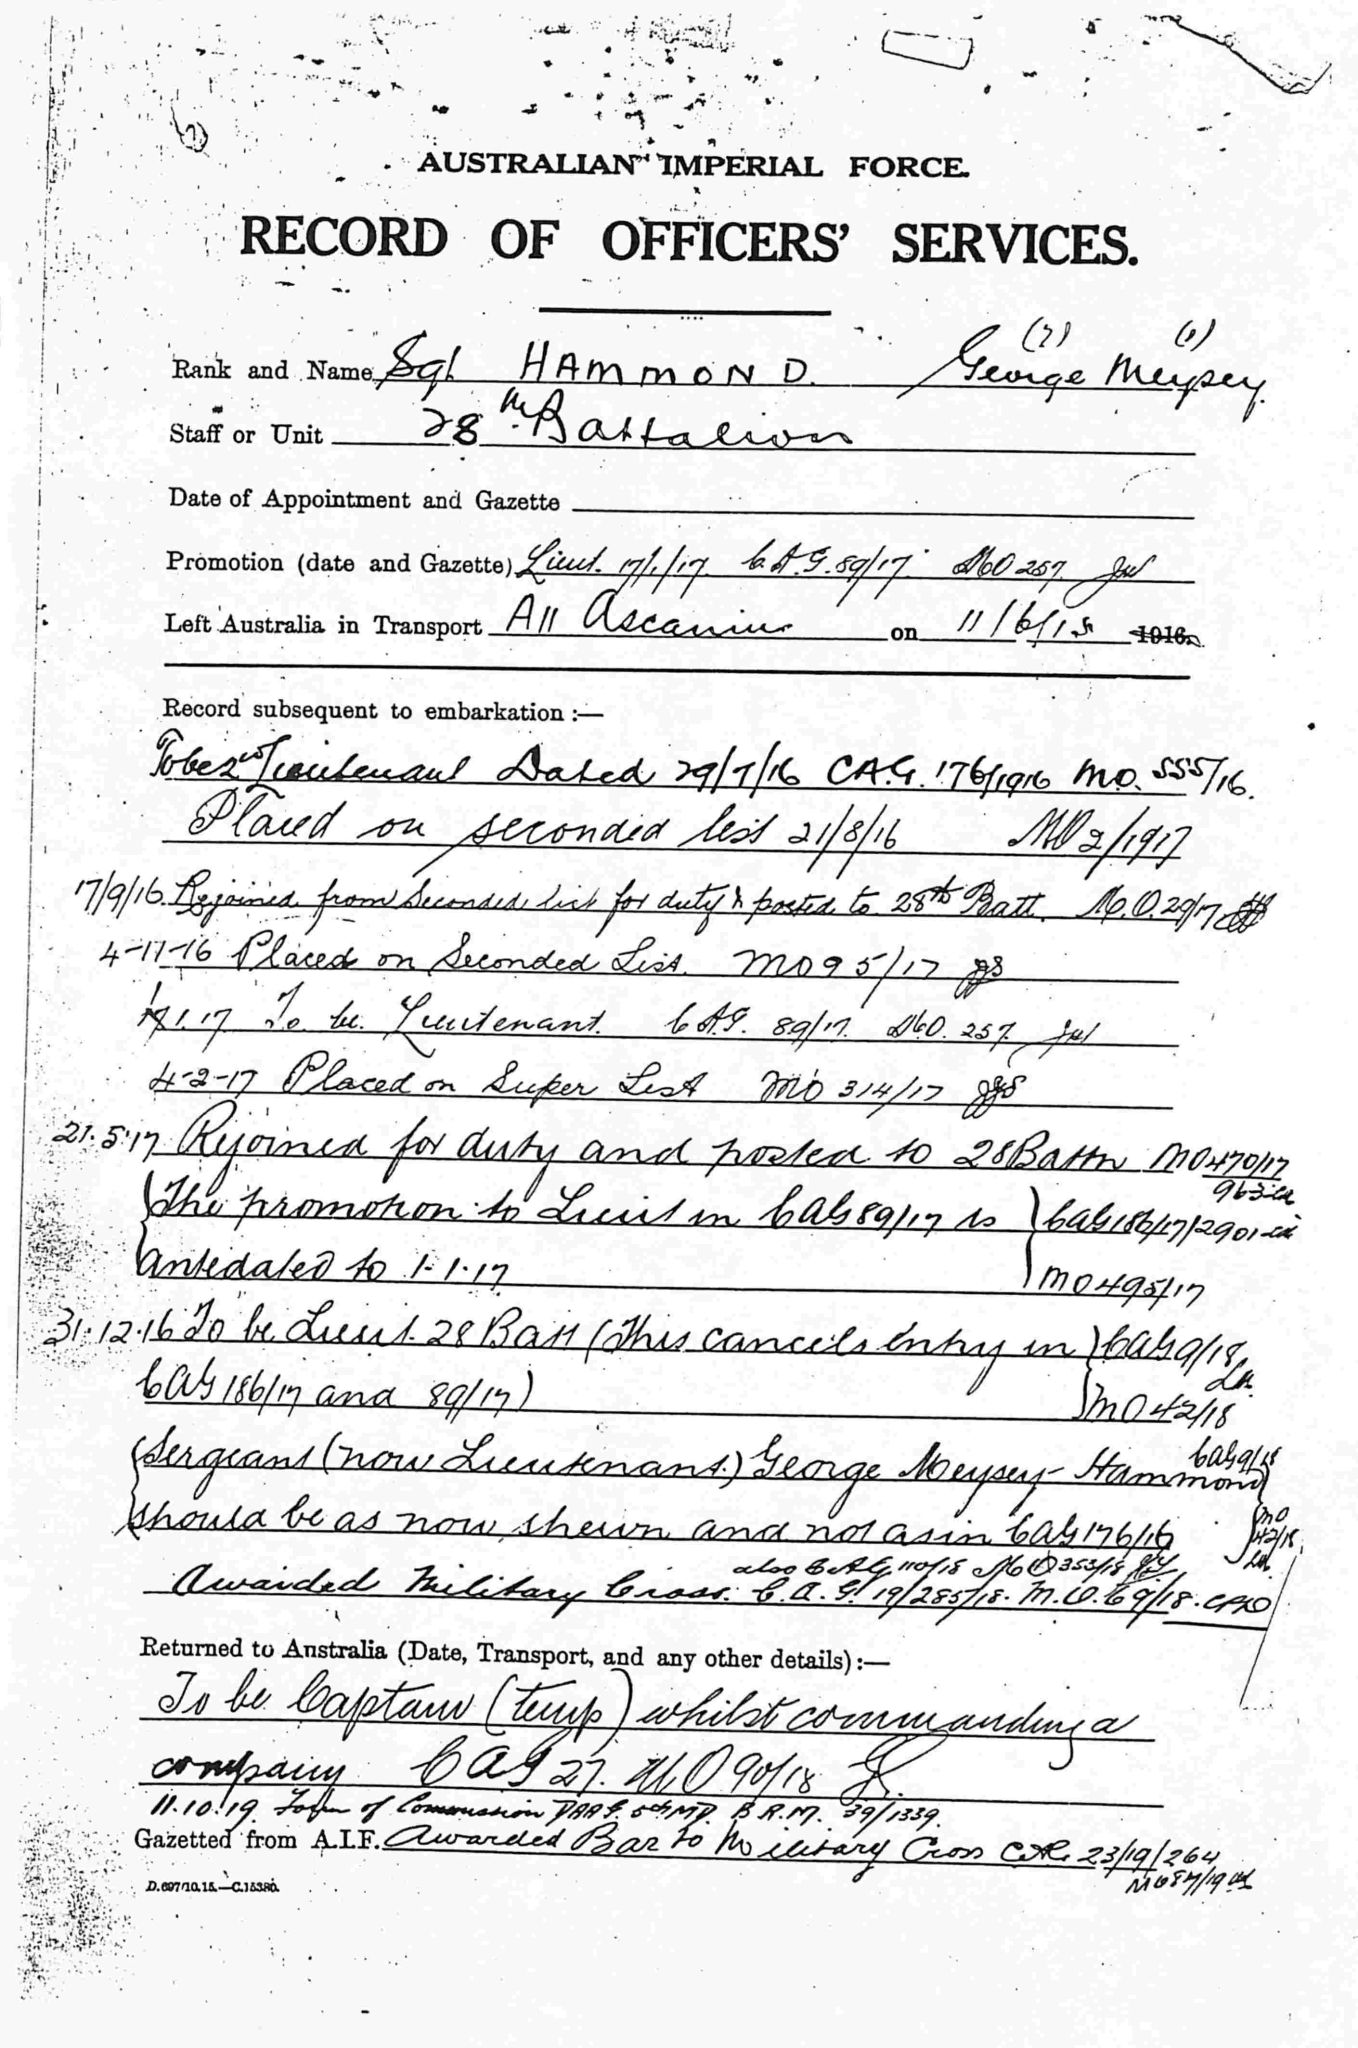 AUSTRALIAN IMPERIAL FORCE.
RECORD OF OFFICERS' SERVICES.
(2) (1)
Rank and Name Sgt HAMMOND. George Meysey.
Staff or Unit 28th Battalion
Date of Appointment and Gazette
Promotion (date and Gazette) Lieut. 17/1/17. C.A.G. 89/17. MO 257
Left Australia in Transport A11 Ascanius on 11/6/15 1916.
Record subsequent to embarkation :—
To be 2nd Lieutenant Dated 29/7/16 C.A.G. 176/1916 MO. 555/16.
Placed on seconded list 21/8/16 MO 2/1917
17/9/16. Rejoined from Seconded list for duty & posted to 28th Batt. M.O. 29/17
4-11-16 Placed on Seconded List. MO 95/17 JJS
1.17 To be Lieutenant. C.A.G. 89/17. MO. 257.
4-2-17 Placed on Super List MO 314/17 JJS
21.5.17 Rejoined for duty and posted to 28 Battn MO 470/17
963
The promotion to Lieut in CAG 89/17 is CAG 186/17/2901
antedated to 1.1.17 MO 495/17
31.12.16 To be Lieut. 28 Batt (This cancels entry in CAG 9/18
CAG 186/17 and 89/17) MO 42/18
Sergeant (now Lieutenant) George Meysey-Hammond CAG 9/18
should be as now shewn and not as in CAG 176/16 MO 42/18
also C.A.G. 110/18 MO 353/18
Awarded Military Cross. C.A.G. 19/285/18. M.O. 69/18.
Returned to Australia (Date, Transport, and any other details) :—
To be Captain (temp) whilst commanding a
company CAG 27. MO 90/18
11.10.19 of Commission DAAG. 5th MD. B.R.M. 39/1339.
Gazetted from A.I.F. Awarded Bar to Military Cross CAG. 23/19/264
MO 87/19
D.697/10.15.—C.15380.